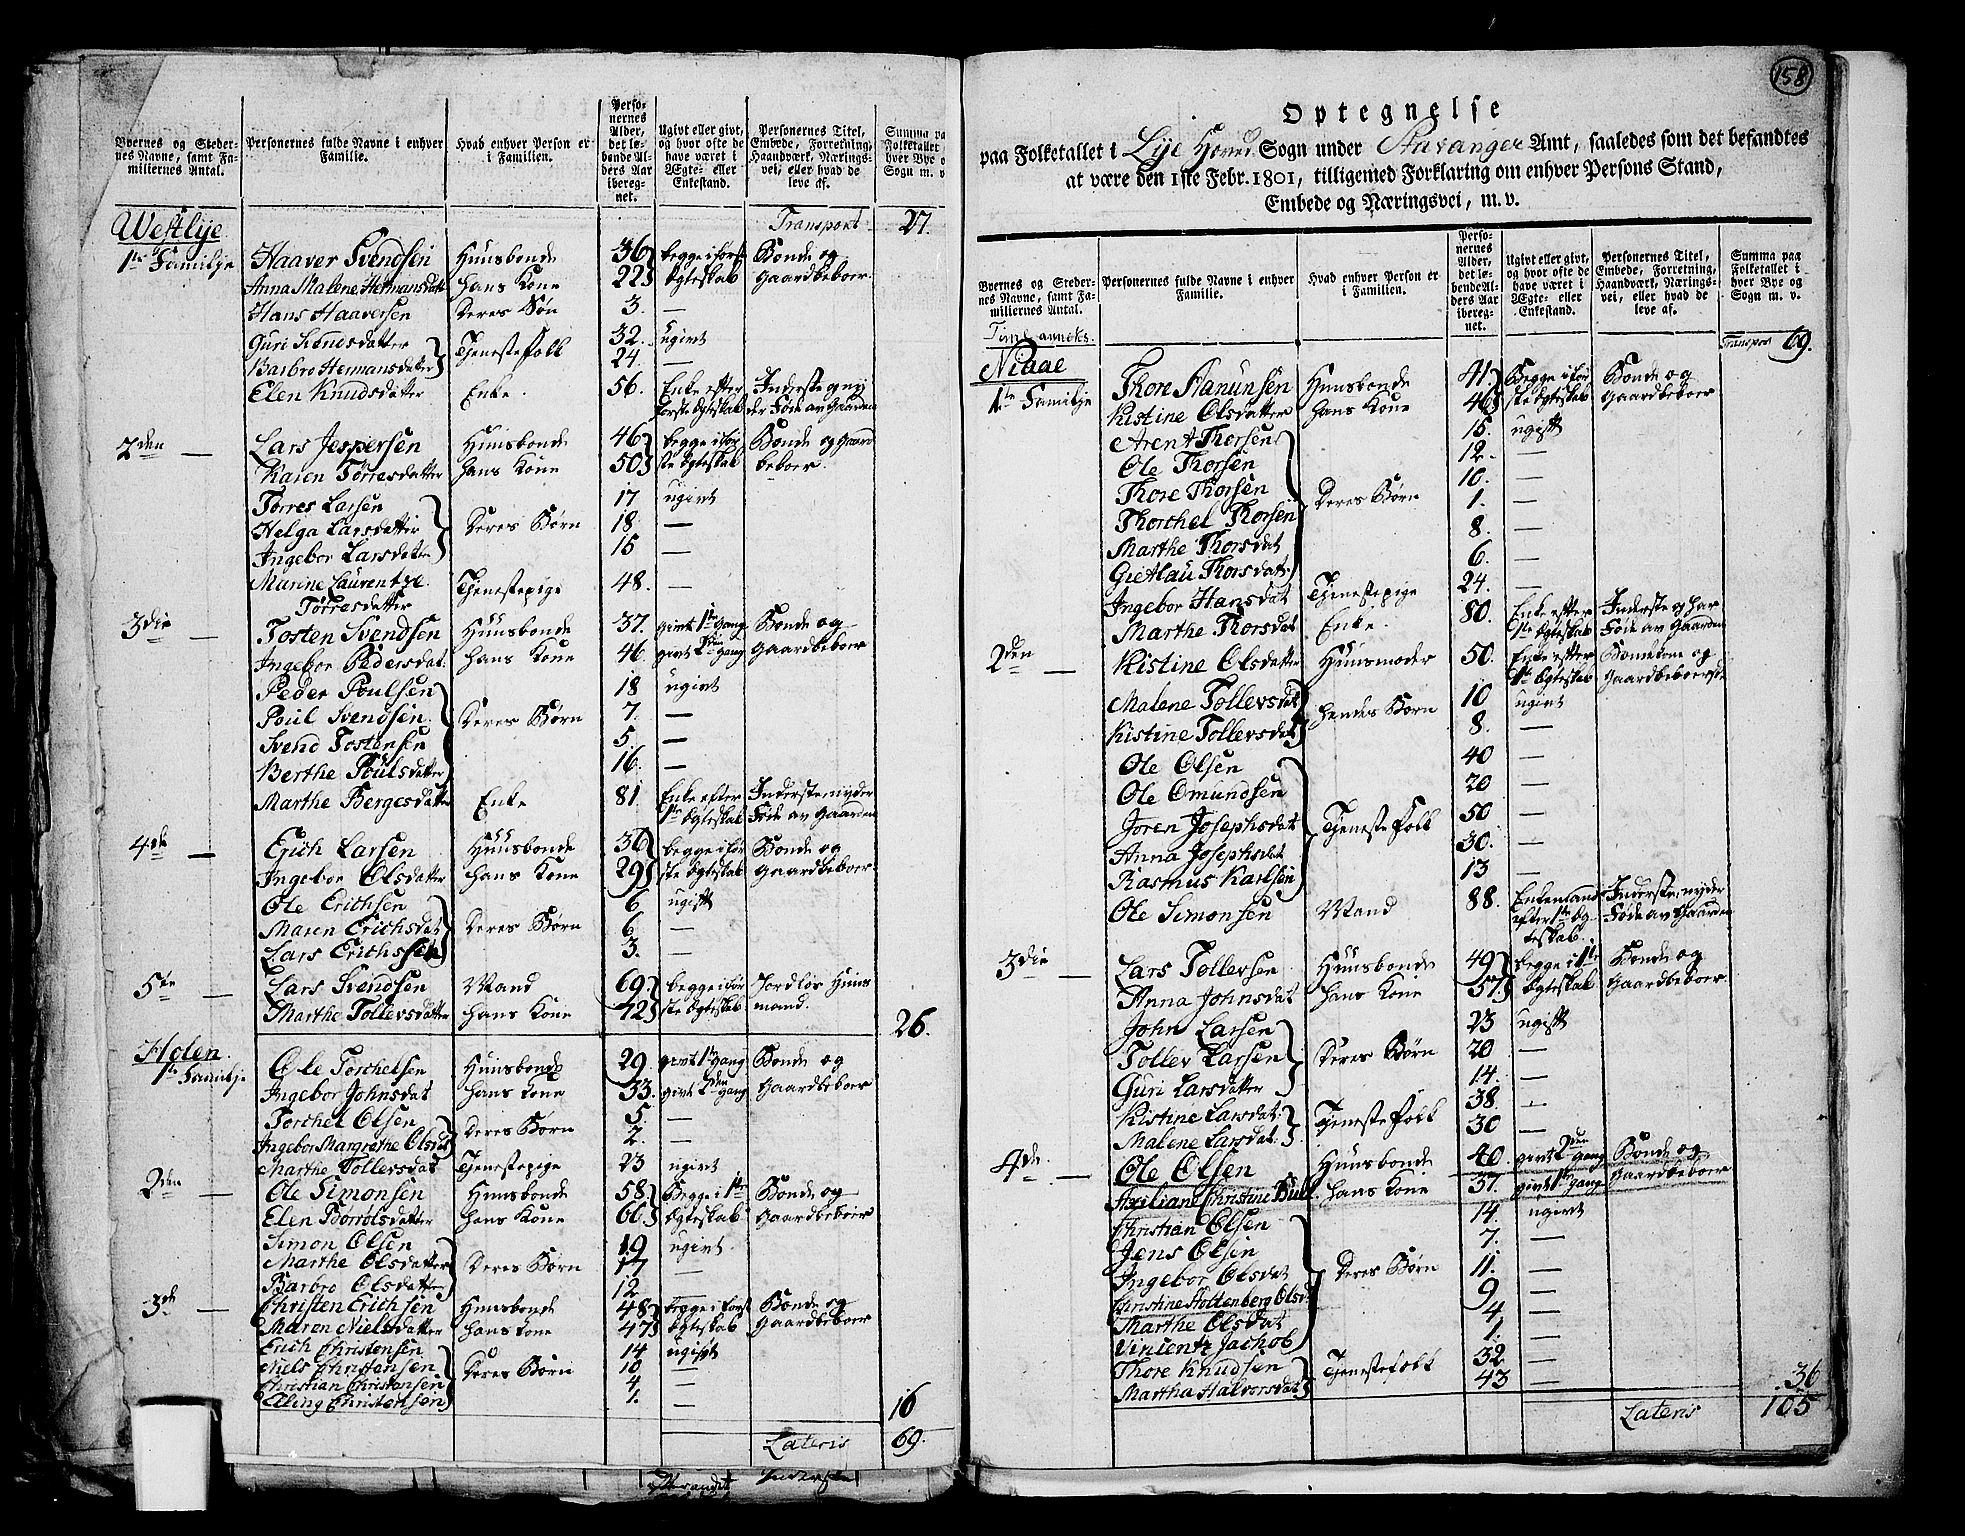 Byernes og Stedernes Navne, samt Familiernes Antal.
Personernes fulde Navne i enhver Familie.
Hvad enhver Person er i Familien.
Personernes Alder, det løbende Alders Aar iberegnet.
Ugivt eller givt, og hvor ofte de have været i Ægte- eller Enkestand.
Personernes Titel, Embede, Forretning, Haandværk, Næringsvei, eller hvad de leve af.
Summa paa Folketallet i hver Bye og Sogn m. v.
Westlye Transport 27.
1te Familje Haaver Svendsen Huusbonde 36 begge i første Bonde og
Anna Malene Hermansdatter hans Kone 22 Egteskab Gaardbeboer
Hans Haaversen Deres Søn 3. —
Guri Svendsdatter Tjenestefolk 32. ugivt
Barbro Hermansdatter 24 —
Elen Knudsdatter Enke. 56. Enke efter første Egteskab Inderste og nyder Føde av Gaarden
2den — Lars Jespersen Huusbonde 46 begge i før Bonde og Gaard
Karen Tørresdatter hans Kone 50 ste Egteskab beboer.
Tørres Larsen 17 ugivt
Helga Larsdatter Deres Børn 18. —
Ingebor Larsdatter 15 —
Marine Laurentze Tørresdatter Tjenestepige 48. —
3die — Torsten Svendsen Huusbonde 37. givt 1te Gang Bonde og
Ingebor Pedersdat. hans Kone 46 givt 2den Gang Gaardbeboer
Peder Poulsen 18 ugivt
Poul Svendsen Deres Børn 7. —
Svend Tostensen 5. —
Berthe Poulsdatter 16. —
Marthe Bergesdatter Enke 81. Enke efter 1te Egteskab Inderste nyder Føde av Gaarden
4de — Erich Larsen Huusbonde 30 begge i før Bonde og
Ingebor Olsdatter hans Kone 29 ste Egteskab Gaardbeboer
Ole Erichsen 6 ugift
Maren Erichsdat Deres Børn 6 —
Lars Erichsen 3. —
5te — Lars Svendsen Mand 69 begge i før Jordløs Huus
Marthe Tollevsdatter hans Kone 42 ste Egteskab mand.
26.
Holen.
1te Familje Ole Torchelsen Huusbonde 29. givt 1te Gang Bonde og
Ingebor Johnsdat hans Kone 33. givt 2den Gang Gaardbeboer
Torchel Olsen Deres Børn 5. —
Ingebor Margrethe Olsdat 2. —
Marthe Tollevsdat Tjenestepige 23 ugivt
2den — Ole Simonsen Huusbonde 58. Begge i 1te Bonde og
Elen Børrolsdatter hans Kone 66 Egteskab Gaardbeboer
Simon Olsen 19 ugivt.
Marthe Olsdatter Deres Børn 17 —
Barbro Olsdatter 12 —
3de — Christen Erichsen Huusbonde 48 begge i først Bonde og
Maren Nielsdatter hans Kone 47 Egteskab Gaardbeboer
Erich Christensen 14 ugift
Niels Christensen Deres Børn 10 —
Christian Christensen 4 —
Eling Christensen 1. —
16
Lateris 69.
158
Optegnelse
paa Folketallet i Lye Hoved Sogn under Stavanger Amt, saaledes som det befandtes
at være den 1ste Febr. 1801, tilligemed Forklaring om enhver Persons Stand,
Embede og Næringsvei, m. v.
Byernes og Stedernes Navne, samt Familiernes Antal.
Personernes fulde Navne i enhver Familie.
Hvad enhver Person er i Familien.
Personernes Alder, det løbende Alders Aar iberegnet.
Ugivt eller givt, og hvor ofte de have været i Ægte- eller Enkestand.
Personernes Titel, Embede, Forretning, Haandværk, Næringsvei, eller hvad de leve af.
Summa paa Folketallet i hver Bye og Sogn m. v.
Transport 69.
1te Familje Thore Aanunsen Huusbonde 41 Begge i før Bonde og
Kistine Olsdatter hans Kone 46 ste Egteskab Gaardbeboer
Arent Thorsen 15. ugift
Ole Thorsen 12. —
Thore Thorsen 10. —
Thorchel Thorsen Deres Børn 1. —
Marthe Thorsdat 8. —
Thorsdat. 6. —
Ingebor Hansdat Tjenestepige 24. —
Marthe Thorsdat Enke. 80. Enke efter 1te Egteskab Inderste og har Føde av Gaarden
2den — Kistine Olsdatter Huusmoder 50. Enke efter 1te Egteskab Bondekone og Gaardbeboerste
Malene Tollevsdat hendes Børn 10 ugivt
Kistine Tollevsdat 8. —
Ole Olsen 40 —
Ole Omundsen 20 —
Joren Josephsdat Tjenestefolk 50 —
Anna Josephsdat 30. —
Rasmus Karlsen 13 —
Ole Simonsen Mand 88. Enkemand efter 1te Egteskab. Inderste, nyder Føde av Gaarden
3die — Lars Tollevsen Huusbonde 49 begge i 1te Bonde og
Anna Johnsdat hans Kone 57. Egteskab Gaardbeboer.
John Larsen 23 ugift
Tollev Larsen Deres Børn 20 —
Guri Larsdatter 14. —
Kistine Larsdat. Tjenestefolk 38. —
Malene Larsdat. 30 —
4de. — Ole Olsen Huusbonde 40. givt 2den Gang Bonde og
Christine Bull. hans Kone 37. givt 1te Gang Gaardbeboer
Christian Olsen 14. ugivt
Jens Olsen 7. —
Ingebor Olsdat Deres Børn 11. —
Christine Stoltenberg Olsd. 9 —
Marthe Olsdat 4 —
Vincentz Jachob 1. —
Thore Knudsen Tjenestefolk 32 —
Martha Halvorsdat 43 —
36
Lateris 105